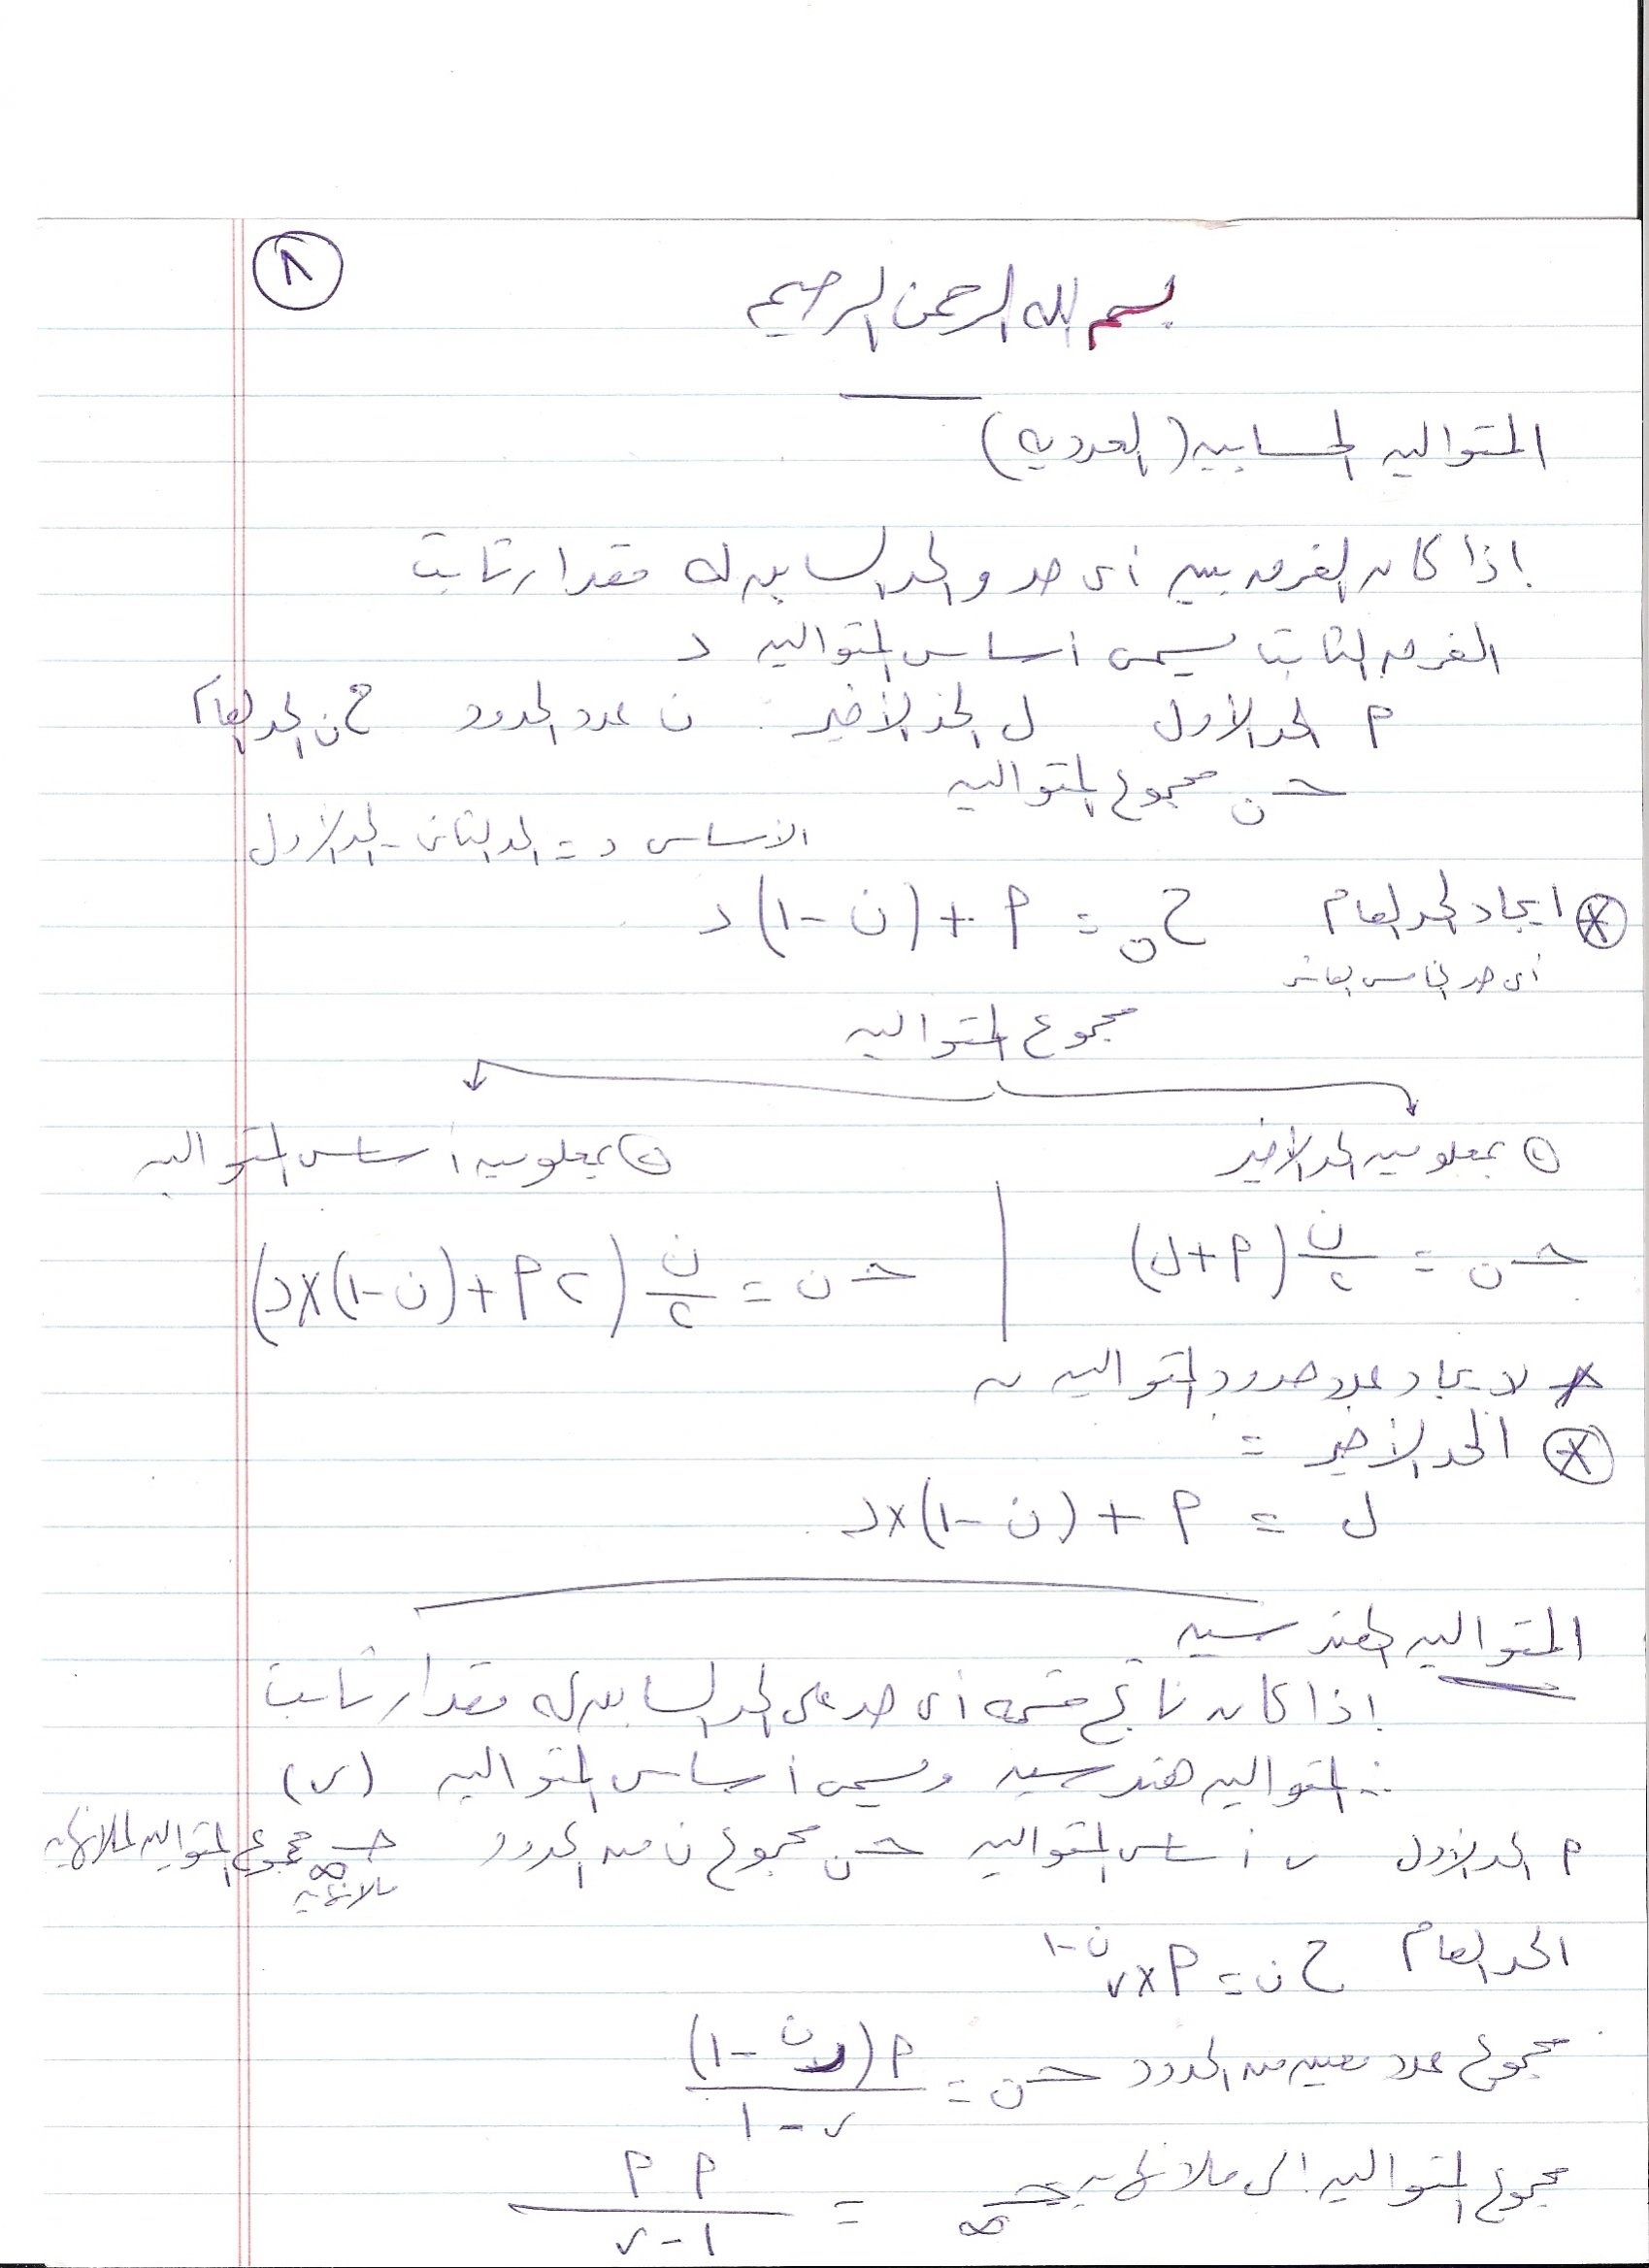 ٨
بسم الله الرحمن الرحيم
المتواليه الحسابيه (العدديه)
إذا كان الفرق بين أى حد والحد السابق له مقدار ثابت
الفرق الثابت يسمى أساس المتواليه د
م الحد الأول ل الحد الأخير ن عدد الحدود ح ن الحد العام
حـ ن مجموع المتواليه
الأساس د = الحد الثانى - الحد الأول
ايجاد الحد العام ح ن = م + (ن - ١) د
أى حد الخامس العاشر
مجموع المتواليه
① بمعلوميه الحد الأخير ② بمعلوميه أساس المتواليه
حـ ن = ن/٢ (م + ل) | حـ ن = ن/٢ (٢م + (ن - ١) × د)
* لايجاد عدد حدود المتواليه ن
الحد الأخير =
ل = م + (ن - ١) × د
المتواليه الهندسيه
إذا كان ناتج قسمة أى حد على الحد السابق له مقدار ثابت
∴ المتواليه هندسيه ويسمى أساس المتواليه (ر)
م الحد الأول ر أساس المتواليه حـ ن مجموع ن من الحدود حـ ∞ مجموع المتواليه اللانهائيه
مالانهايه
الحد العام ح ن = م × ر^(ن - ١)
مجموع عدد معين من الحدود حـ ن = م (ر^ن - ١) / (ر - ١)
مجموع المتواليه إلى مالانهايه حـ ∞ = م م / (١ - ر)